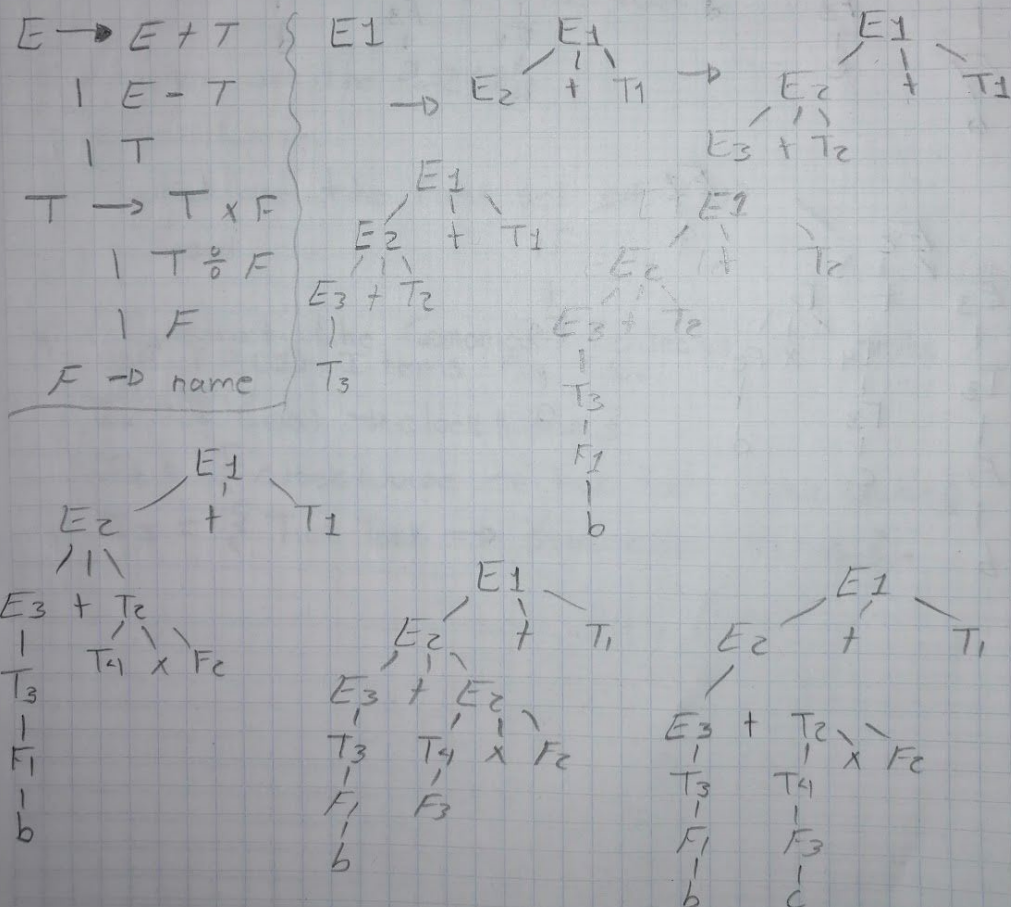 E → E + T
| E - T
| T
T → T x F
| T ÷ F
| F
F → name
E1
→
E1
E2 + T1
→
E1
E2 + T1
E3 + T2
E1
E2 + T1
E3 + T2
T3
E1
E2 + T2
E3 + T2
T3
F1
b
E1
E2 + T1
E3 + T2
T4 x F2
T3
F1
b
E1
E2 + T1
E3 + E2
T3 T4 x F2
F1 F3
b
E1
E2 + T1
E3 + T2
x F2
T3 T4
F1 F3
b c